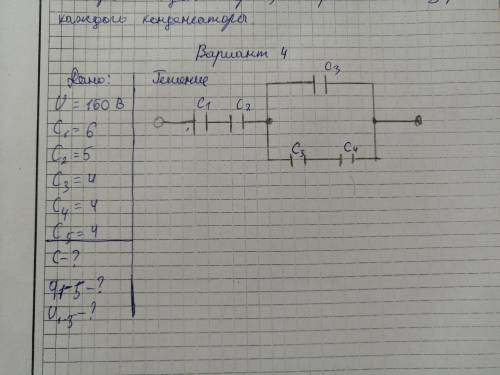 каждого конденсаторы.
Вариант 4
Дано: Решение
U = 160 В
C1 = 6
C2 = 5
C3 = 4
C4 = 4
C5 = 4
C - ?
q1-5 - ?
U1-5 - ?
C1 C2
C3
C5 C4